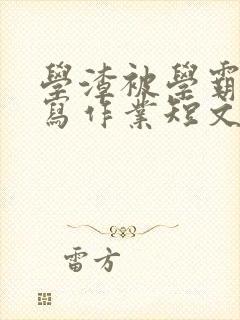 學渣被學霸
寫作業短文
雷方